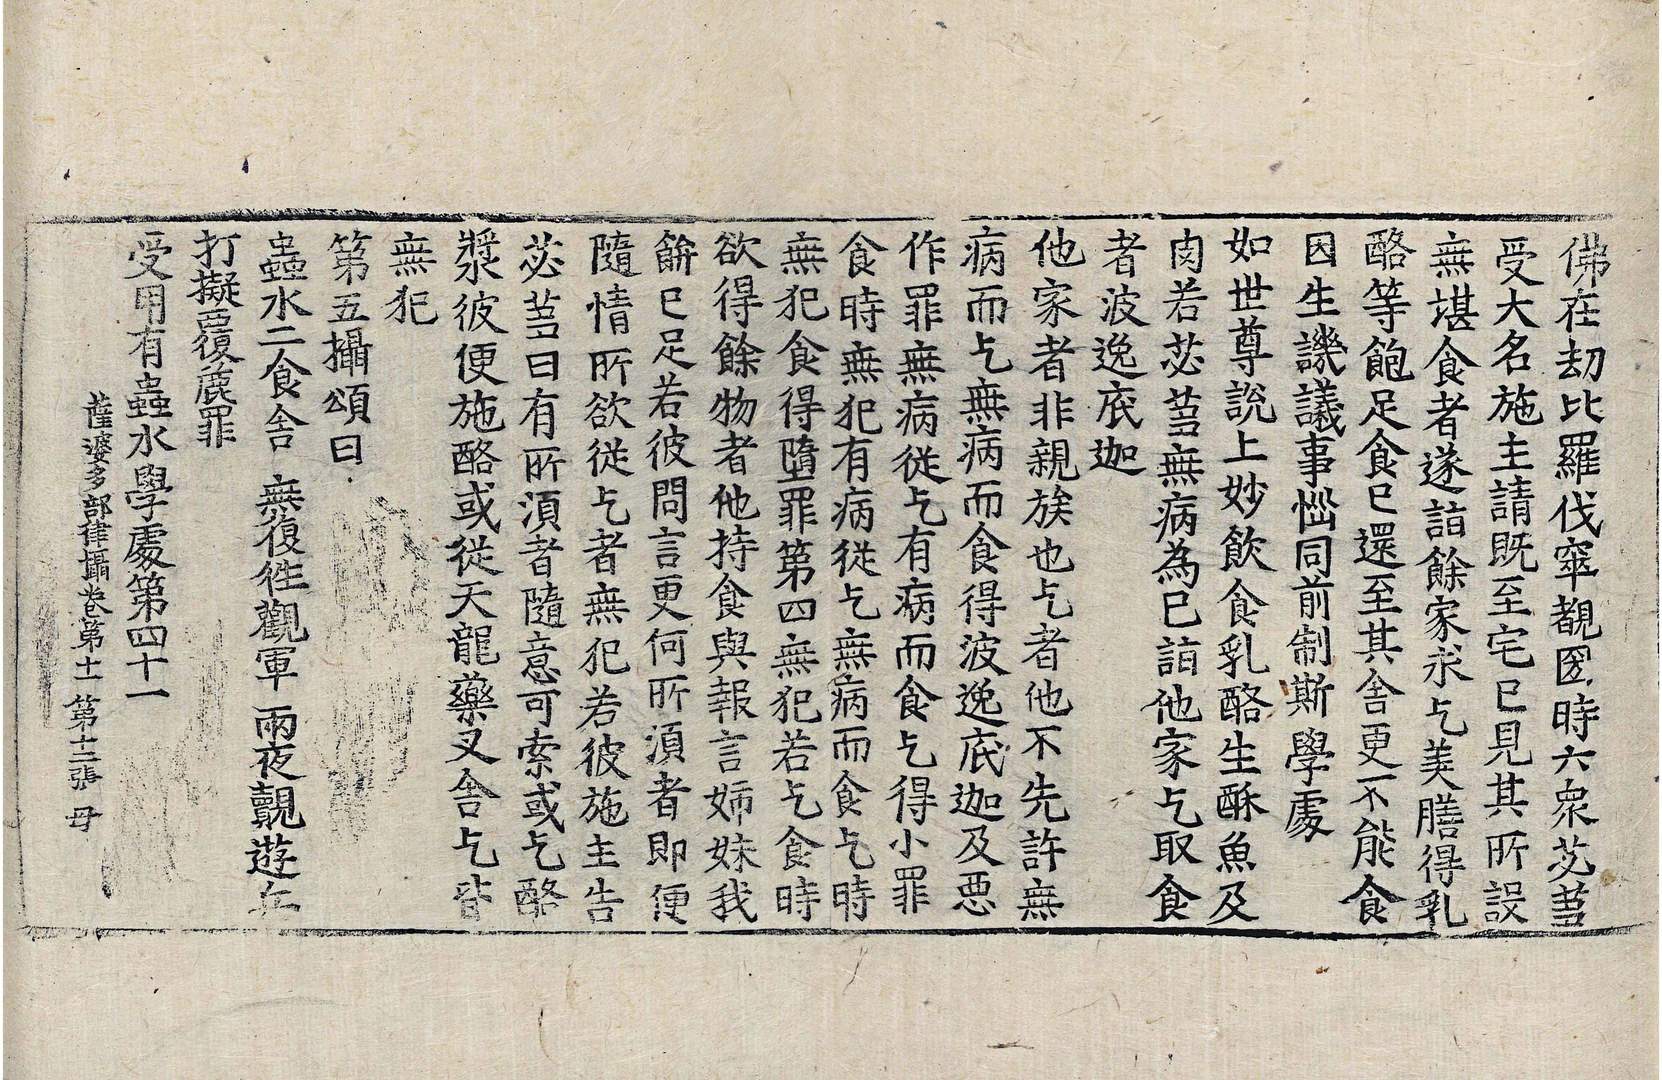 佛在劫比羅伐窣覩國時六衆苾芻
受大名施主請既至宅已見其所設
無堪食者遂詣餘家求乞美膳得乳
酪等飽足食已還至其舍更不能食
因生譏議事惱同前制斯學處
如世尊說上妙飲食乳酪生酥魚及
肉若苾芻無病為已詣他家乞取食
者波逸底迦
他家者非親族也乞者他不先許無
病而乞無病而食得波逸底迦及惡
作罪無病從乞有病而食乞得小罪
食時無犯有病從乞無病而食乞時
無犯食得墮罪第四無犯若乞食時
欲得餘物者他持食與報言姉妹我
餅已足若彼問言更何所湏者即便
隨情所欲從乞者無犯若彼施主告
苾芻曰有所湏者隨意可索或乞酪
漿彼便施酪或從天龍藥叉舍乞皆
無犯
第五攝頌曰
蟲水二食舍 無復徃觀軍 兩夜觀遊兵
打擬覆麁罪
受用有蟲水學處第四十一
薩婆多部律攝卷第十一 第十三張 母